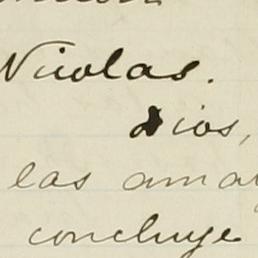 Nicolas.
Dios,
las
concluye